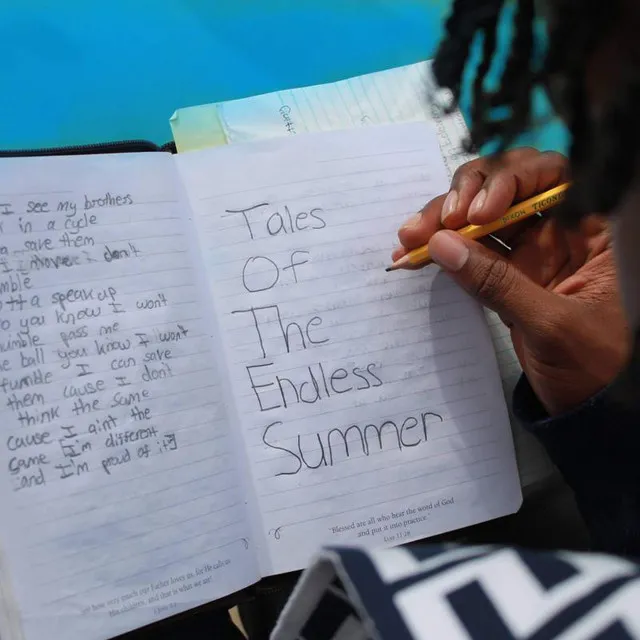 I see my brothers
in a cycle
save them
I don't
speak up
you know I won't
pass me
ball you know I won't
fumble I can save
them cause I don't
think the same
cause I ain't the
same I'm different
and I'm proud of it
how very much our Father loves us, for He calls us
His children, and that is what we are!
Tales
Of
The
Endless
Summer
"Blessed are all who hear the word of God
and put it into practice."
Luke 11:28
DIXON TICONDE